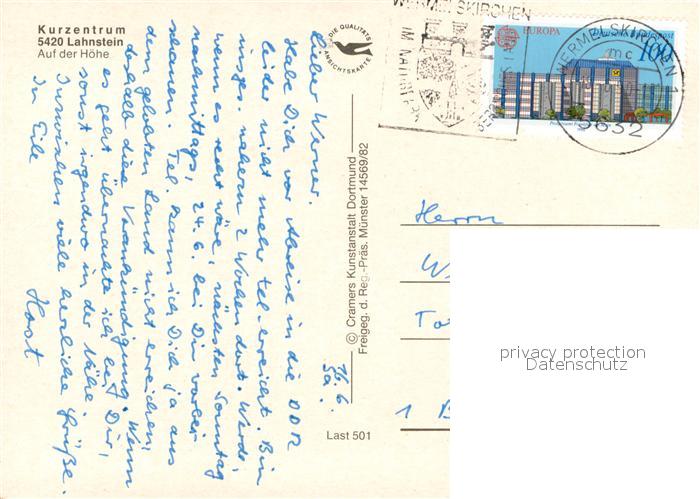 Kurzentrum
5420 Lahnstein
Auf der Höhe
DIE QUALITÄTS
ANSICHTSKARTE
16.6.
Lieber Werner.
Habe Dich vor Abreise in die DDR
leider nicht mehr tel. erreicht. Bin
insges. nahezu 2 Wochen dort. Werde,
wenn es recht wäre, nächsten Sonntag
nachmittags, 24.6. bei Dir vorbei
schauen. Tel. kann ich Dich ja aus
dem gelobten Land nicht erreichen,
deshalb diese Vorankündigung. Wenn
es geht übernachte ich bei Dir,
sonst irgendwo in der Nähe.
Inzwischen viele herzliche Grüße.
In Eile
Horst
© Cramers Kunstanstalt Dortmund
Freigeg. d. Reg.-Präs. Münster 14569/82
Last 501
WERMELSKIRCHEN
IM NATURPARK
EUROPA
Deutsche Bundespost
100
WERMELSKIRCHEN 1
mc
5632
Herrn
W
1 B
privacy protection
Datenschutz